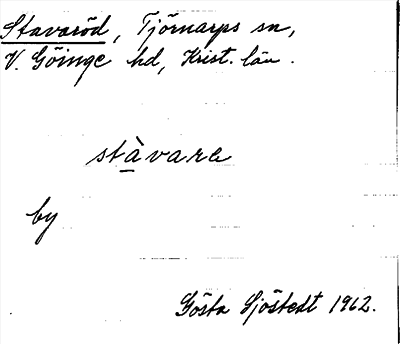 Stavaröd, Tjörnarps sn,
V. Göinge hd, Krist. län.
stàvarə
by
Gösta Sjöstedt 1962.